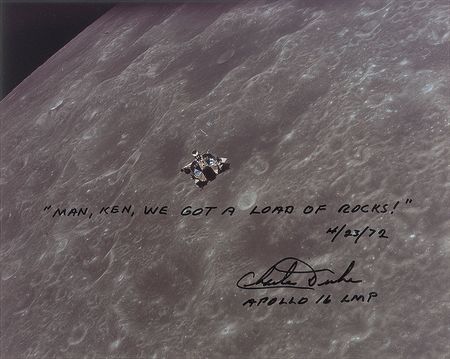 "MAN, KEN, WE GOT A LOAD OF ROCKS!"
4/23/72
Charlie Duke
APOLLO 16 LMP